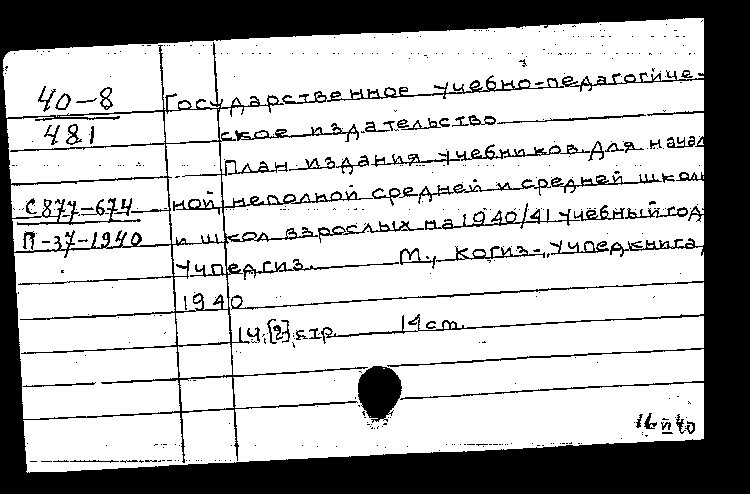 40-8
481
Государственное учебно-педагогиче-
ское издательство
План издания учебников для начал
С877-674
ной, неполной средней и средней школы
П-37-1940
и школ взрослых на 1940/41 учебный год
Учпедгиз. М., Когиз-„Учпедкнига,
1940
14,[2] стр. 14 cm.